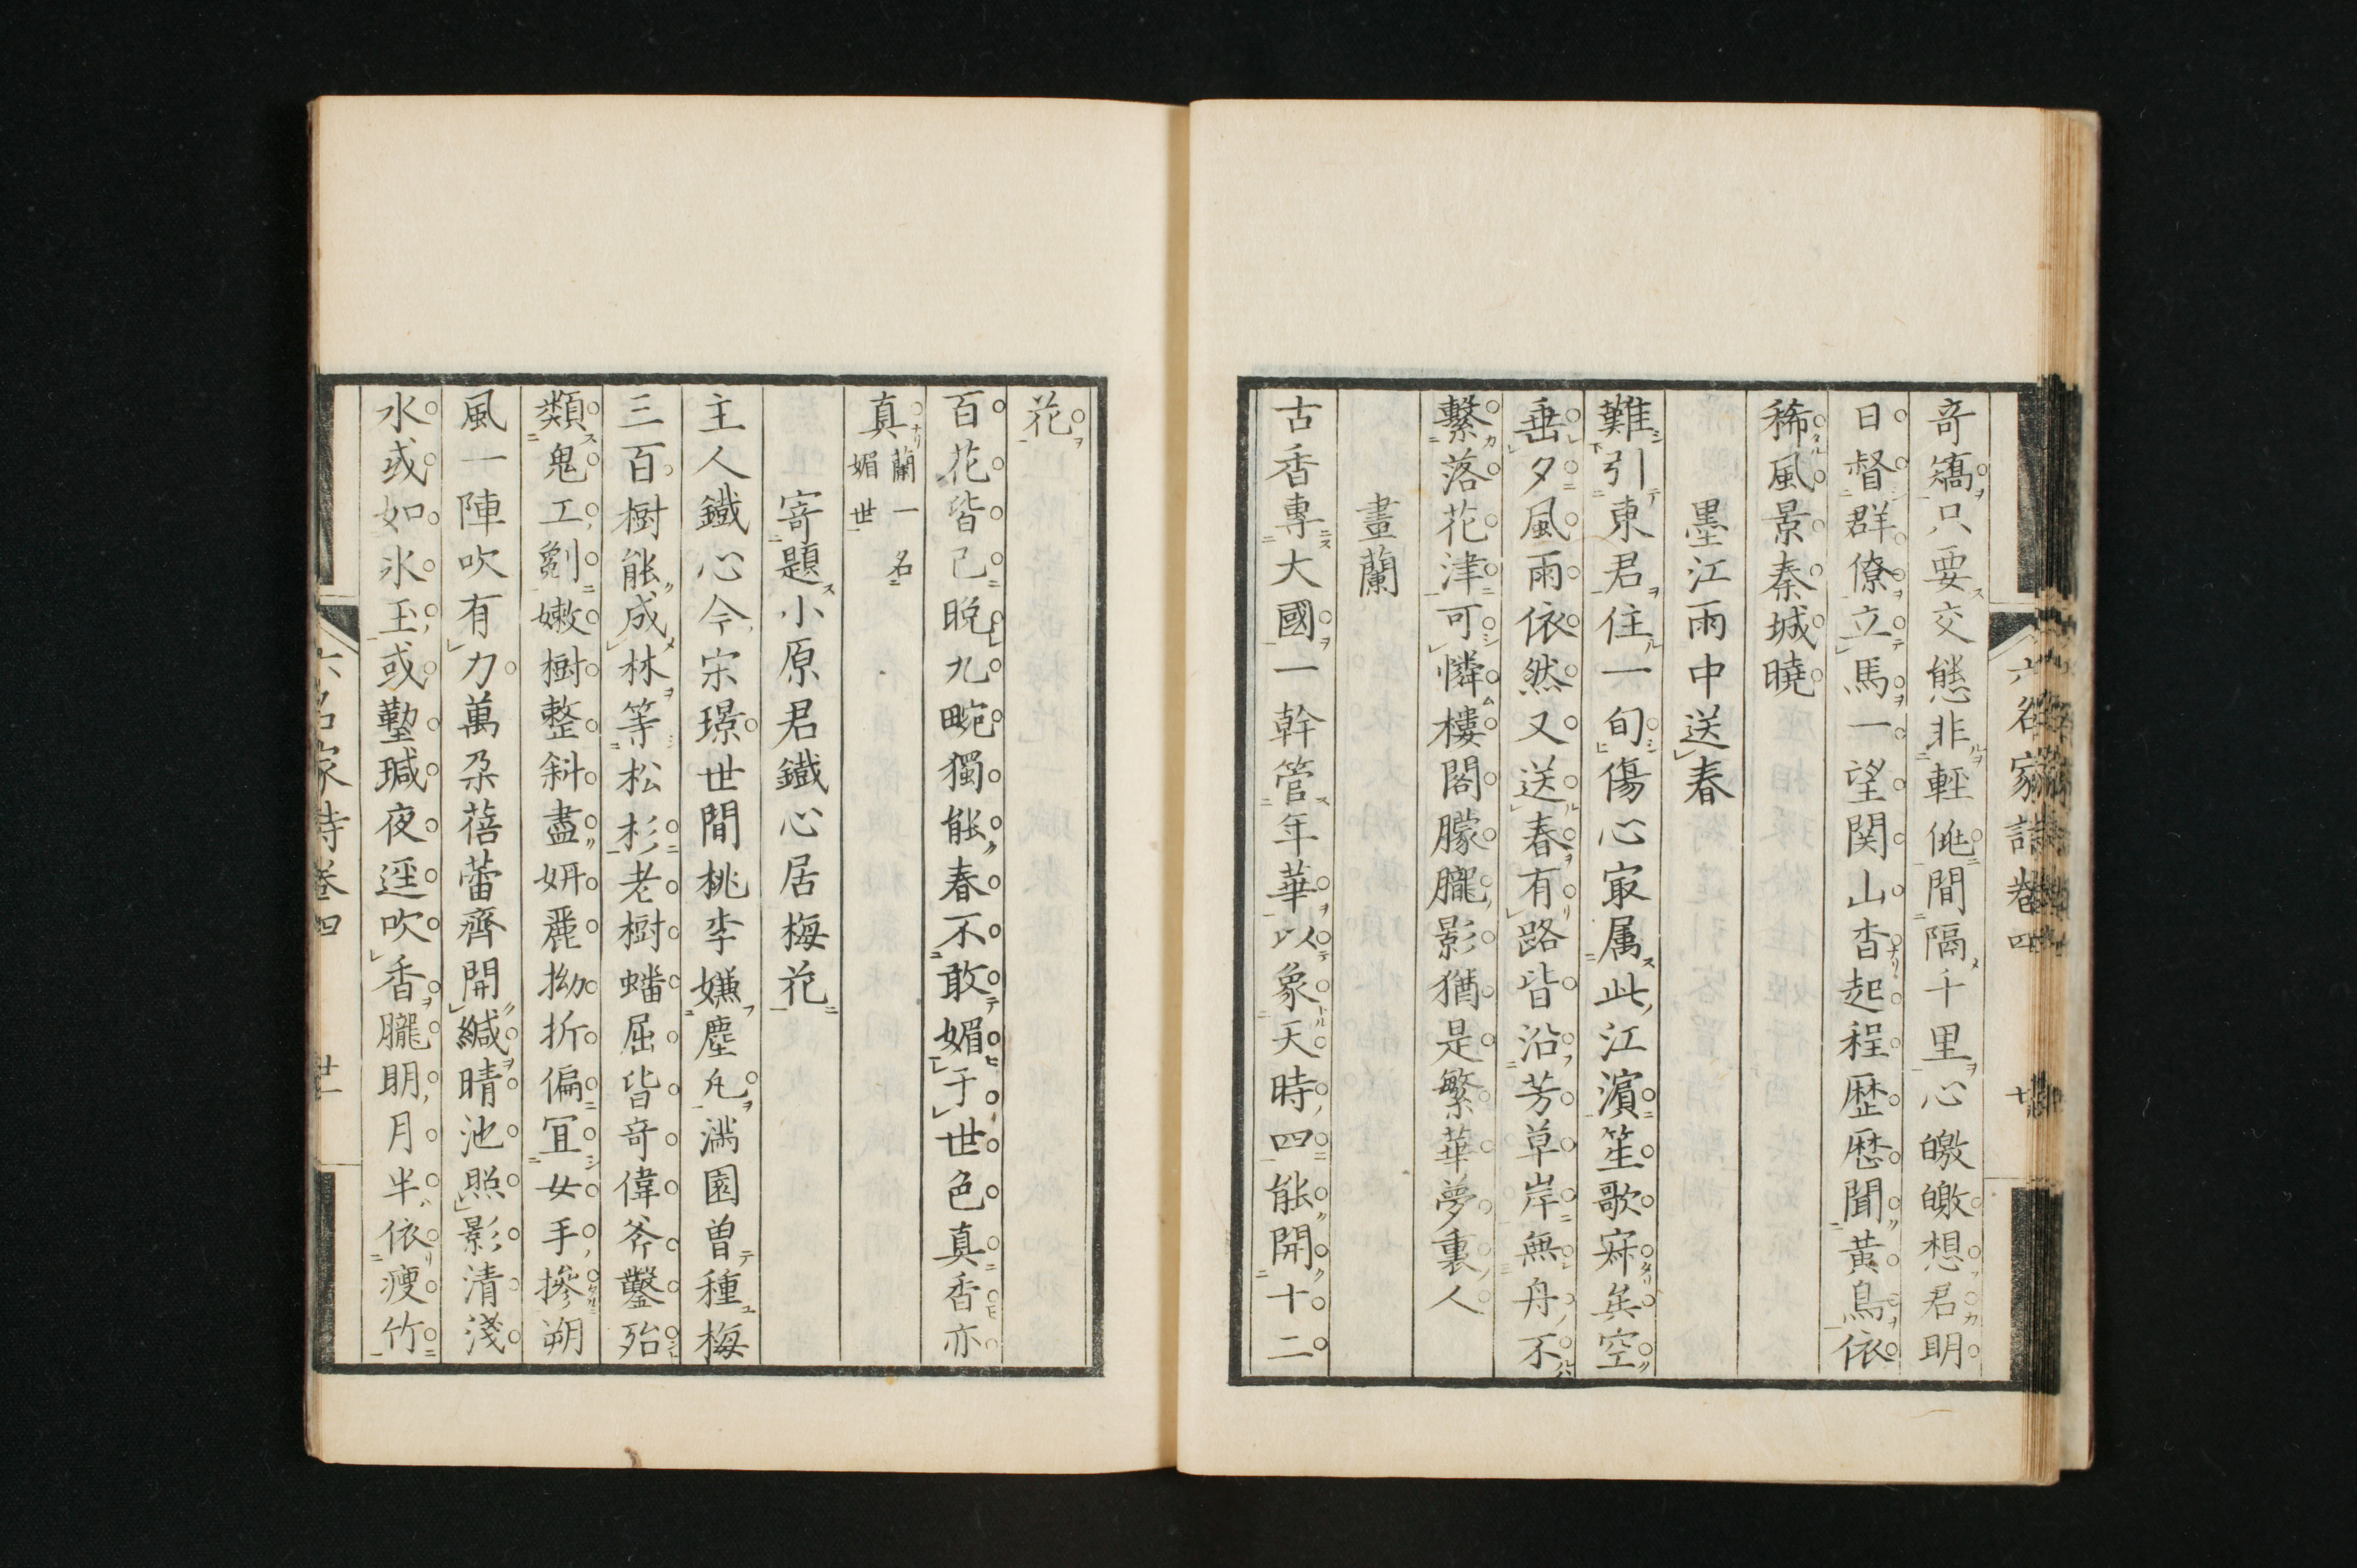 奇穤只要交態非輕佻間隔千里心皦皦想君明
日督群僚立馬一望関山杳起程歴歴聞黄鳥依
稀風景秦城曉
墨江雨中送春
難引東君住一旬傷心㝡属此江濵笙歌寂矣空
垂夕風雨依然又送春有路皆沿芳草岸無舟不
繋落花津可憐樓閣朦朧影猶是繁華夢裏人
畫蘭
古香專大國一幹管年華以象天時四能開十二
六名家詩卷四
花
百花皆已晩九畹獨能春不敢媚于世色真香亦
真 蘭一名
媚世
寄題小原君鐵心居梅花
主人鐵心今宋璟世間桃李嫌塵凡満園曽種梅
三百樹能成林等松杉老樹蟠屈皆奇偉斧鑿殆
類鬼工劖嫩樹整斜盡妍麗拗折偏宜女手摻朔
風一陣吹有力萬朶蓓蕾齊開緘晴池照影清淺
水或如氷玉或勤瑊夜逕吹香朧明月半依瘦竹
六名家詩卷四 廿一